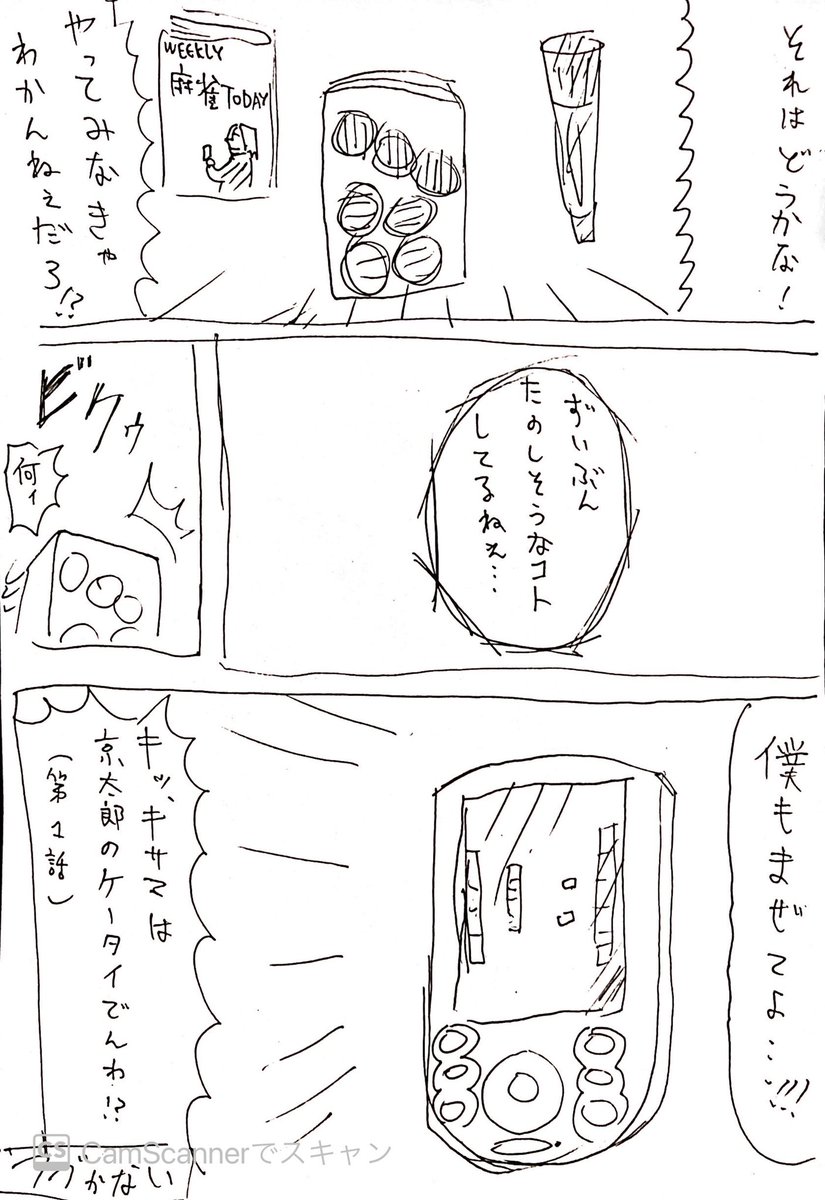 それはどうかな!
WEEKLY
麻雀TODAY
やってみなきゃ
わかんねぇだろ!?
ずいぶん
たのしそうなコト
してるねぇ…
ビクゥ
何ィ
僕もまぜてよ…!!!
キッ、キサマは
京太郎のケータイでんわ!?
(第1話)
つづかない
CS CamScannerでスキャン